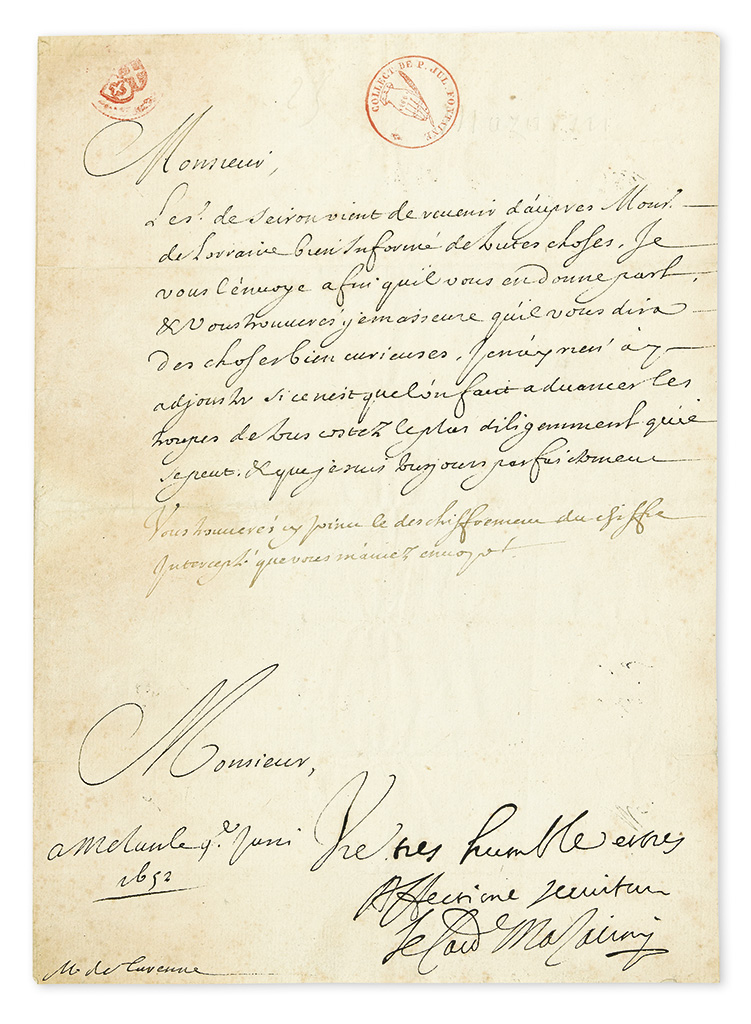 COLLECT. DE P. JUL. FONTAINE
Monsieur,
Le sr. de Seiron vient de revenir d'aupres Monsr.
de Lorraine bien Informé de toutes choses. Je
vous l'énvoye afin qu'il vous en donne part,
& Vous trouverés je m'asseure qu'il vous dira
des choses bien curieuses. Je n'ay rien à y
adjouster si ce n'est que l'ón fait aduancer les
troupes de tous costez le plus diligemment qu'il
se peut. & que je suis tousjours parfaictement
Vous trouverés cy joint le deschiffrement du chiffre
Intercepté que vous m'auez enuoyé.
Monsieur,
Vre tres humble et tres
a Melun le 9e. Juin
1652
Affectione seruiteur
le Card Mazarini
Mr. de Turenne